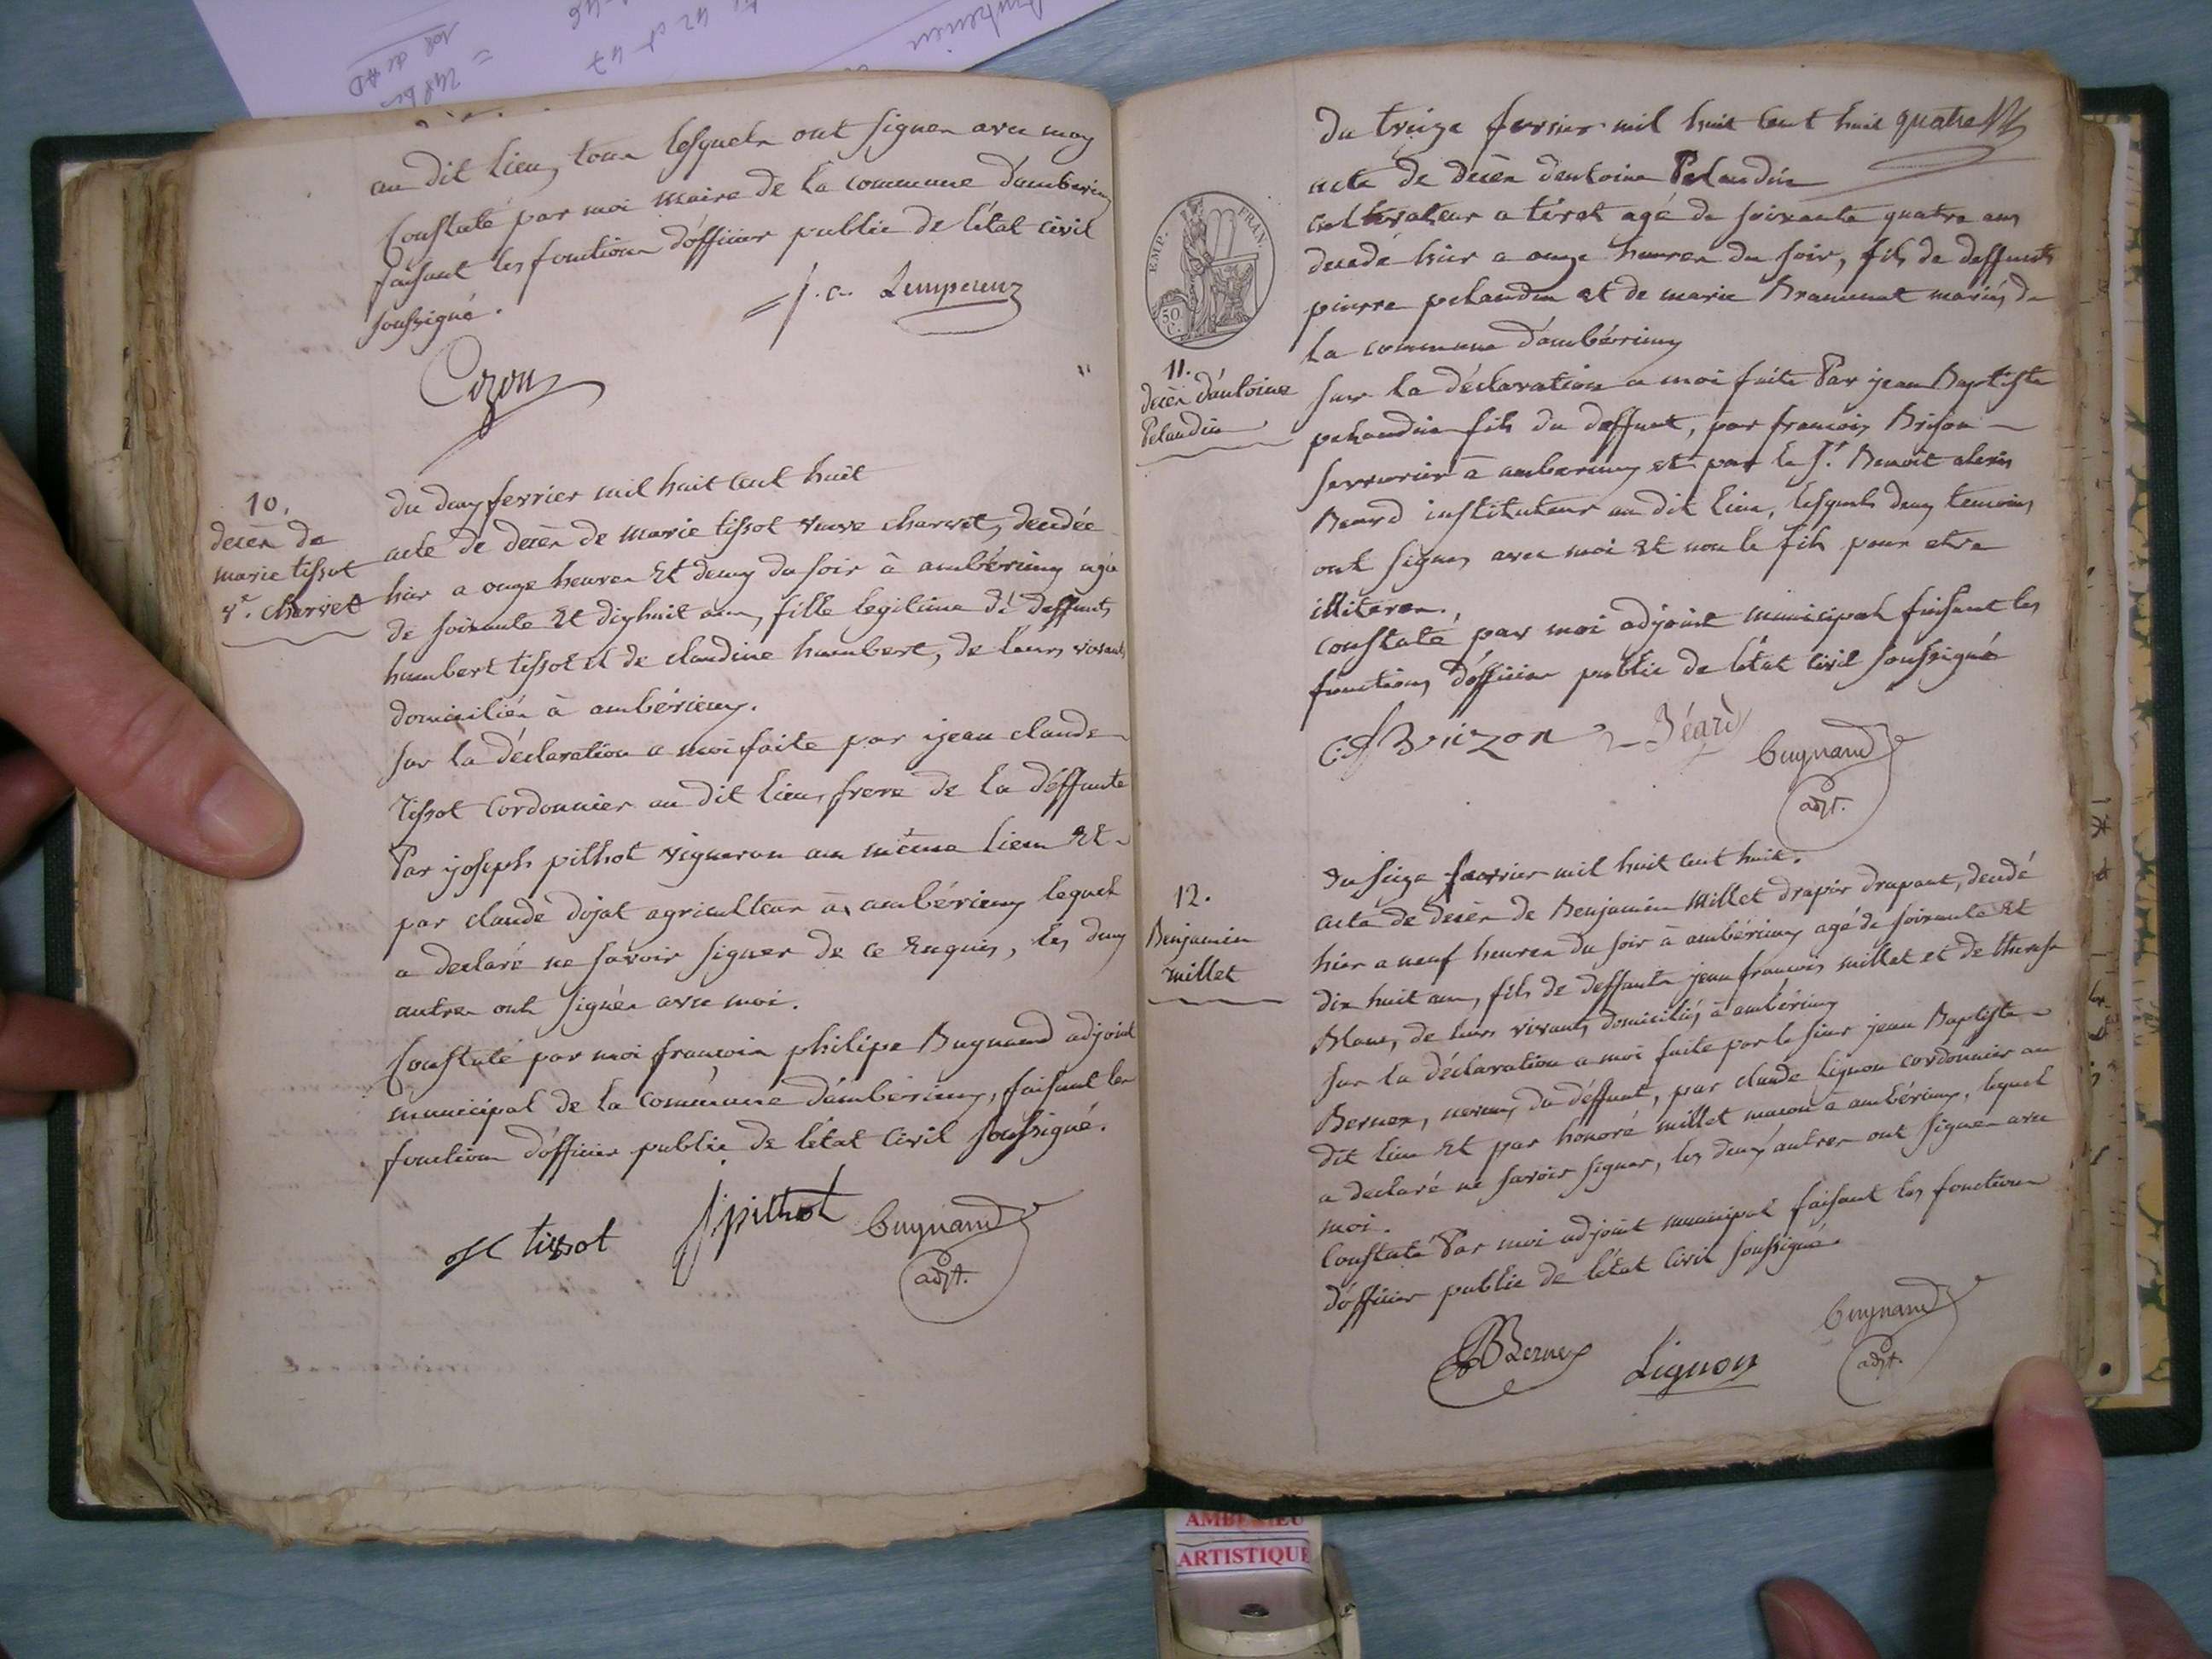 au dit lieu, tous lesquels ont signer avec moy
Constaté par moi maire de la commune d'amberieu
faisant les fonctions d'officier public de l'état civil
soussigné.
Cozon
10.
decès de
marie tissot
v.e charvet
du deux fevrier mil huit cent huit
acte de decès de marie tissot veuve charvet, decedée
hier a onze heures et demy du soir à ambérieux agée
de soixante et dixhuit ans, fille legitime de deffunts
humbert tissot et de claudine humbert, de leurs vivants
domiciliés à ambérieux.
sur la déclaration a moi faite par jean claude
tissot cordonnier au dit lieu, frere de la déffunte
Par joseph pithot vigneron au même lieu et
par claude dojat agriculteur à ambérieux lequel
a declaré ne savoir signer de ce Enquis, les deux
autres ont signés avec moi.
Constaté par moi françois philipe Bugnand adjoint
municipal de la commune d'ambérieux, faisant les
fonctions d'officier public de l'état civil soussigné.
tissot
J pithot
Bugnand
adjt.
EMP. FRAN.
50 C.
du treize fevrier mil huit cent huit quatre
acte de decès d'antoine Pelandin
cultivateur a tiret agé de soixante quatre ans
decedé hier a onze heures du soir, fils de deffunts
pierre pelandin et de marie Brammat mariés de
la commune d'ambérieux
11.
decès d'antoine
Pelandin
sur la déclaration a moi faite Par jean Baptiste
pelandin fils du deffunt, par francois Brison
serrurier à amberieux et par le Sr. Benoit alexis
Beard instituteur au dit lieu, lesquels deux temoins
ont signés avec moi et non le fils pour etre
illiteres.
constaté par moi adjoint municipal faisant les
fonctions d'officier public de l'état civil soussigné
Brizon
Béard
Bugnand
adjt.
12.
Benjamin
millet
du seize fevrier mil huit cent huit.
acte de decès de Benjamin Millet drapier drapant, decedé
hier a neuf heures du soir à ambérieux agé de soixante et
dix huit ans, fils de deffunts jean francois millet et de therese
Blanc, de leurs vivants domiciliés à ambérieux
sur la déclaration a moi faite par le sieur jean Baptiste
Bernex, neveux du déffunt, par claude Lignon cordonnier au
dit lieu et par honoré millet macon à ambérieux, lequel
a declaré ne savoir signer, les deux autres ont signer avec
moi.
Constaté Par moi adjoint municipal faisant les fonctions
d'officier public de l'état civil soussigné.
Bernex
Lignon
Bugnand
adjt.
AMBERIEU
ARTISTIQUE